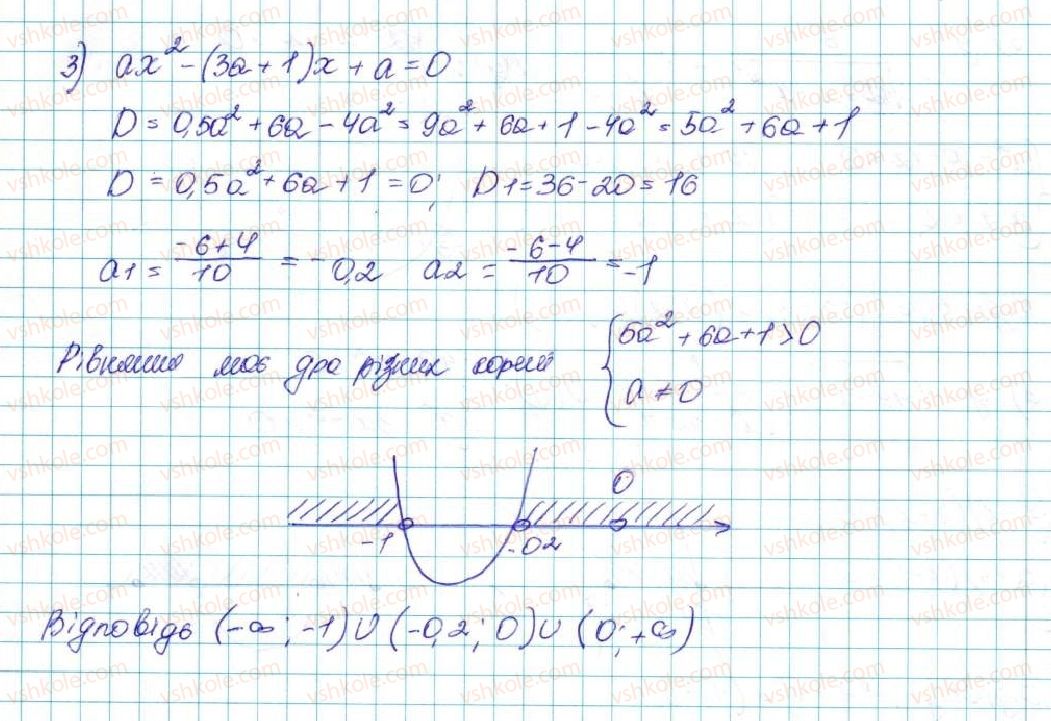 3) ax² - (3a + 1)x + a = 0
D = 0,5a² + 6a - 4a² = 9a² + 6a + 1 - 4a² = 5a² + 6a + 1
D = 0,5a² + 6a + 1 = 0; D1 = 36 - 20 = 16
a1 = (-6+4)/10 = -0,2 a2 = (-6-4)/10 = -1
Рівняння має два різних корені { 5a² + 6a + 1 > 0
a ≠ 0
0
-1 -02
Відповідь (-∞; -1) ∪ (-0,2; 0) ∪ (0; +∞)
vshkole.com